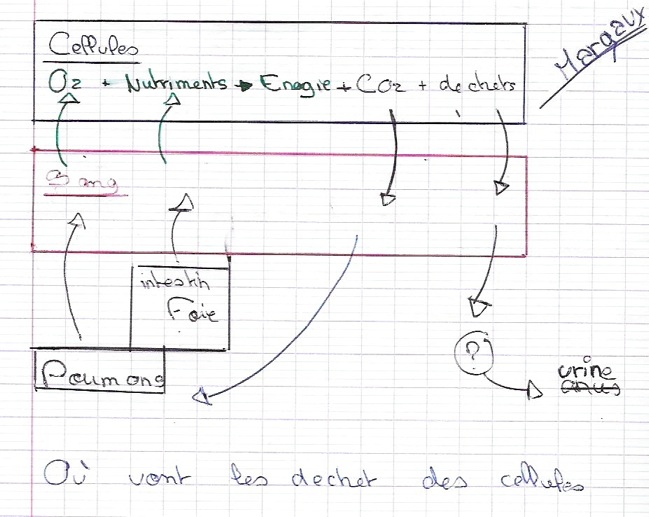 Margaux
Cellules
O2 + Nutriments → Enegie + CO2 + dechets
intestin
Foie
Poumons
?
urine
Où vont les dechet des cellules